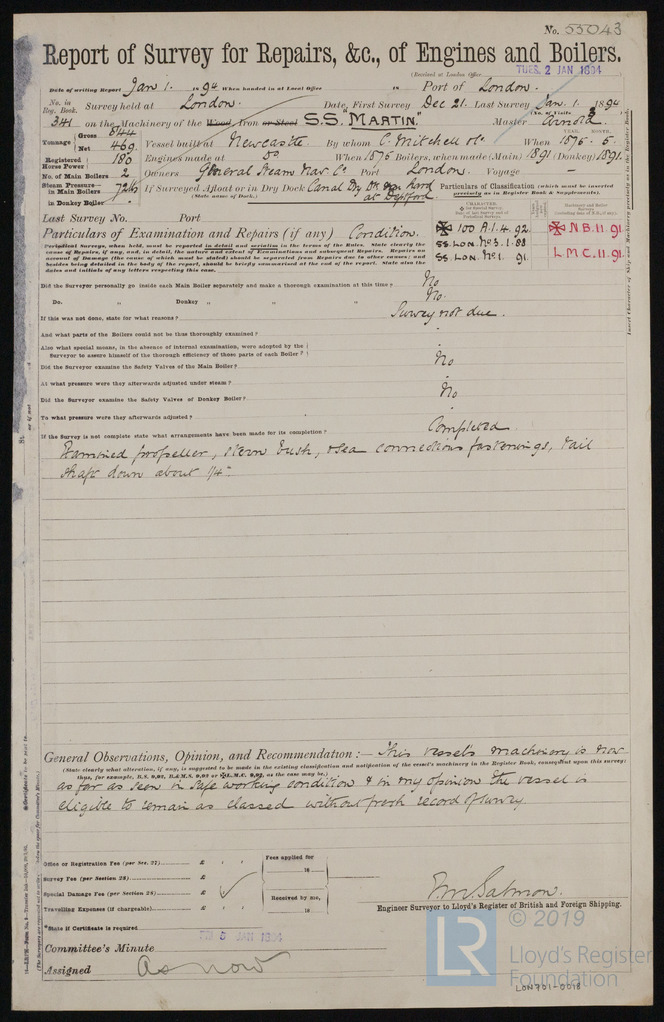 No. 55043
Report of Survey for Repairs, &c., of Engines and Boilers.
(Received at London Office
TUES. 2 JAN 1894
Date of writing Report Jan 1. 1894 When handed in at Local Office 18 Port of London.
No. in Reg. Book. Survey held at London. Date, First Survey Dec 21. Last Survey Jan. 1. 1894
(No. of Visits
341 on the Machinery of the Wood, Iron or Steel S.S. "MARTIN." Master Arnold
Tonnage Gross 844 Net 469 Vessel built at Newcastle. By whom C. Mitchell & Co. When 1876. 5.
YEAR. MONTH.
Registered Horse Power 180 Engines made at Do When 1876 Boilers, when made (Main) 1891 (Donkey) 1891.
No. of Main Boilers 2 Owners General Steam Nav. Co. Port London. Voyage —
Steam Pressure in Main Boilers 72 lb in Donkey Boiler If Surveyed Afloat or in Dry Dock Canal Dry Dk at Deptford.
(State name of Dock.)
Particulars of Classification (which must be inserted precisely as in Register Book & Supplements).
Last Survey No. Port
✠ 100 A.1. 4. 92.
SS. LON. No 3. 1. 88
SS. LON. No 1. 91.
✠ N.B. 11. 91.
L.M.C. 11. 91.
Particulars of Examination and Repairs (if any) Condition.
Periodical Surveys, when held, must be reported in detail and seriatim in the terms of the Rules. State clearly the
cause of Repairs, if any, and, in detail, the nature and extent of Examinations and subsequent Repairs. Repairs on
account of Damage (the cause of which must be stated) should be separated from Repairs due to other causes; and
besides being detailed in the body of the report, should be briefly summarised at the end of the report. State also the
dates and initials of any letters respecting this case.
Did the Surveyor personally go inside each Main Boiler separately and make a thorough examination at this time? No
Do. „ Donkey „ „ „ No.
If this was not done, state for what reasons? Survey not due.
And what parts of the Boilers could not be thus thoroughly examined?
Also what special means, in the absence of internal examination, were adopted by the
Surveyor to assure himself of the thorough efficiency of those parts of each Boiler?
Did the Surveyor examine the Safety Valves of the Main Boiler? No
At what pressure were they afterwards adjusted under steam?
Did the Surveyor examine the Safety Valves of Donkey Boiler? No
To what pressure were they afterwards adjusted?
If the Survey is not complete state what arrangements have been made for its completion? Completed
Examined propeller, stern bush, & sea connections fastenings, tail
shaft down about 1/4"
General Observations, Opinion, and Recommendation:— This vessel's machinery is now
(State clearly what alteration, if any, is suggested to be made in the existing classification and notification of the vessel's machinery in the Register Book, consequent upon this survey;
thus, for example, B.S. 9,92, B.&M.S. 9,92 or ✠L.M.C. 9,92, as the case may be.)
as far as seen in safe working condition & in my opinion the vessel is
eligible to remain as classed without fresh record of survey
Office or Registration Fee (per Sec. 27) £
Fees applied for
18
Survey Fee (per Section 28) £
Special Damage Fee (per Section 28) £
Received by me,
Travelling Expenses (if chargeable) £
18
E. M. Salmon.
Engineer Surveyor to Lloyd's Register of British and Foreign Shipping.
*State if Certificate is required
Committee's Minute
5 JAN 1894
Assigned As now
© 2019
LR
Lloyd's Register
Foundation
LON701-0018